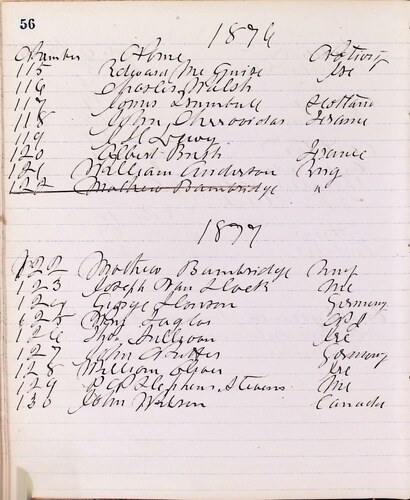 56
1876
Number Name Nativity
115 Edward McGuire Ire
116 Charles Walsh
117 Louis Trumbull Scotland
118 John France
119
120 Albert Bush France
121 William Anderson Eng
122 Mathew Bambridge "
1877
122 Mathew Bambridge Eng
123 Joseph Van Vlack Me
124 George Germany
125 Wm Taylor
126 Thos Sullivan Ire
127 John Germany
128 William Oliver Ire
129 Stephens Stevens Me
130 John Wilson Canada